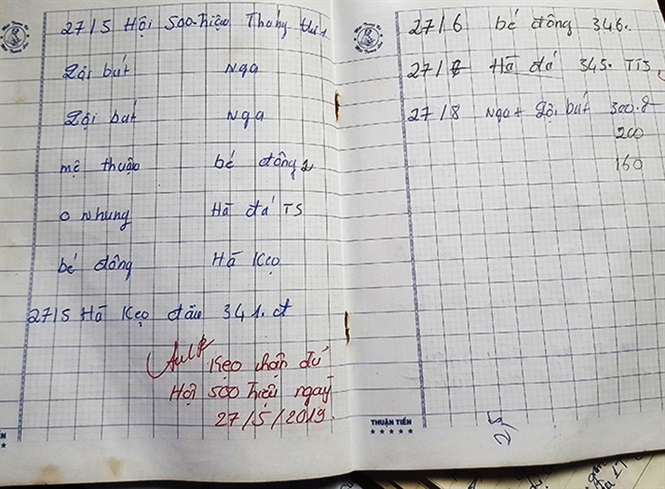 27/5 Hội 500 triệu Tháng
Lội bút Nga
Lội bút Nga
mệ thuận bé đông 2
o Nhung Hà đá TS
bé đông Hà Kẹo
27/5 Hà Kẹo đầu 341.đ
Kẹo nhận đủ
Hội 500 triệu ngay
27/5/2019
27/6 bé đông 346.
27/ Hà đá 345. TTS
27/8 Nga + Lội bút 300.
200
160
THUẬN TIẾN
★★★★★